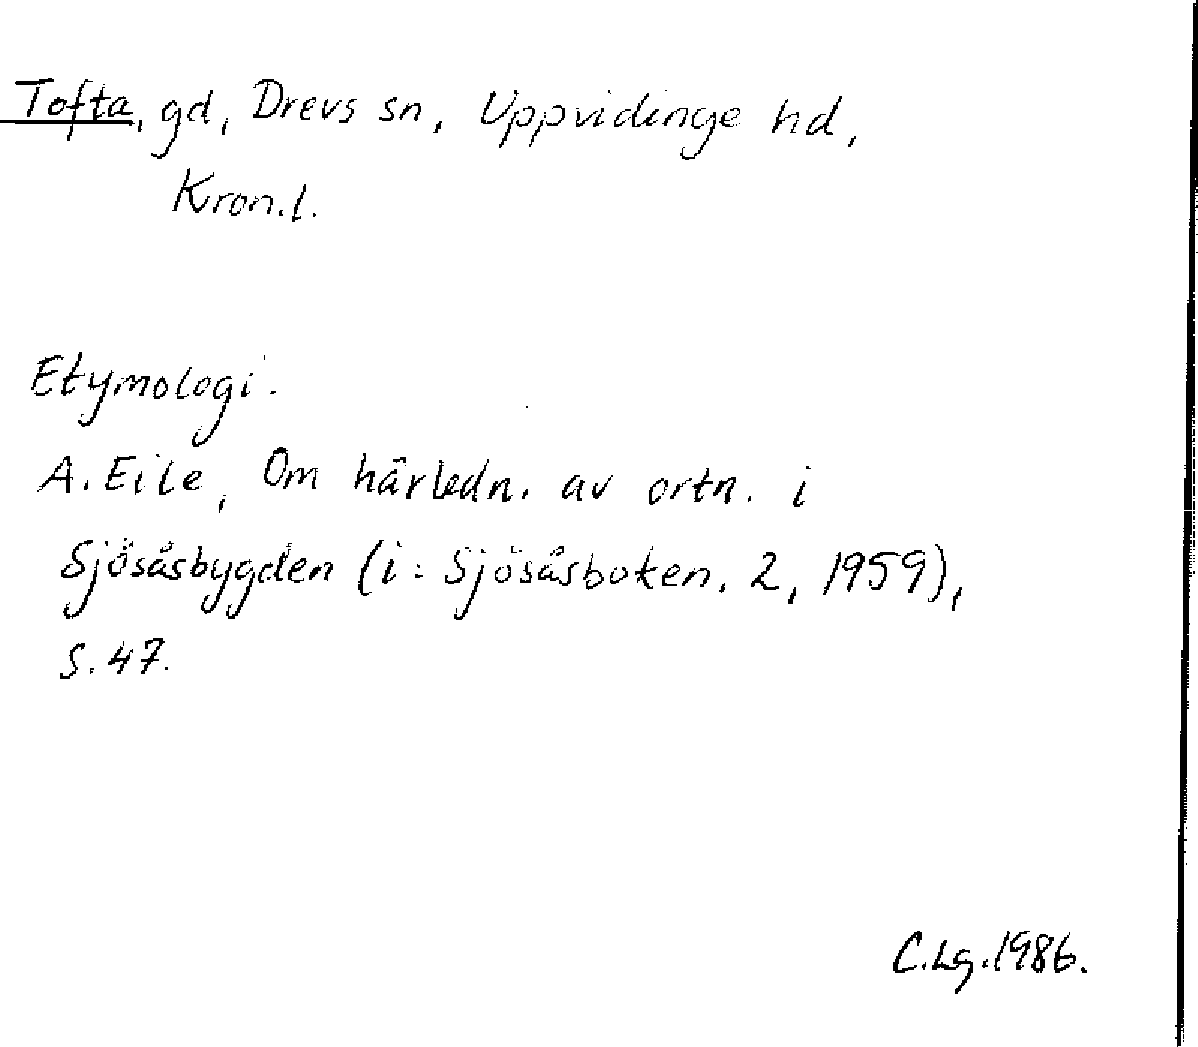 Tofta, gd, Drevs sn, Uppvidinge hd,
Kron.l.
Etymologi.
A. Eile, Om härledn. av ortn. i
Sjösåsbygden (i: Sjösåsboken. 2, 1959),
s. 47.
C.Lg.1986.